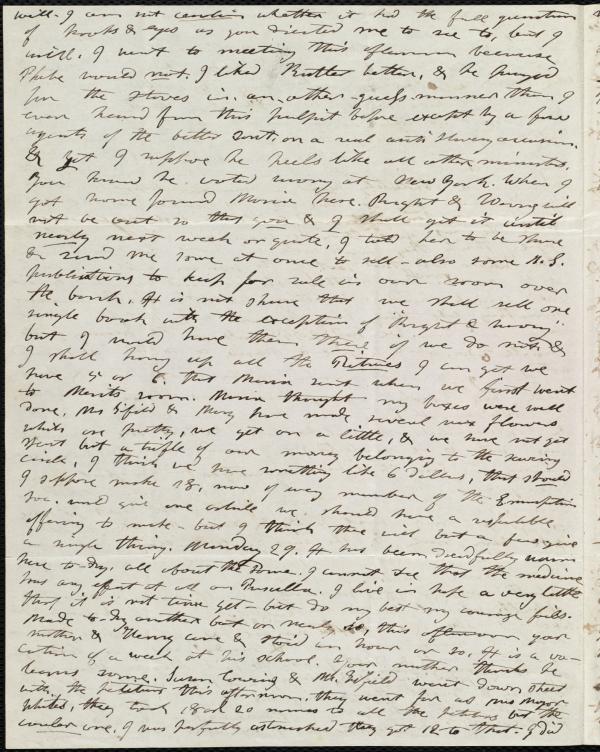 will. I am not certain whether it had the full quantum
of hooks & eyes as you directed me to see to, but I
will. I went to meeting this afternoon because
Phebe would not. I liked better, & he prayed
for the slaves in an other-guess manner than I
ever heard from this pulpit before except by a few
agents of the better sort, on a real anti slavery occasion,
& yet I suppose he feels like all other ministers.
You know he voted wrong at New York. When I
got home found Maria here. Right & Wrong will
not be out so this year & I shall get it until
nearly next week or quite, I told her to be sure
& send me some at once to sell - also some A.S.
publications to keep for sale in our room over
the bank. It is not sure that we shall sell one
single book with the exception of "Right & wrong"
but I would have them there if we do not, &
I shall hang up all the Pictures I can get we
have 5 or 6 that Maria sent when we first went
to room. Maria thought my boxes were well
done. Mrs Fifield & Mary have made several wax flowers
which are pretty, we get on a little, & we have not got
spent but a trifle of our money belonging to the sewing
circle, I think we have something like 6 dollars, that should
I suppose make 18, now if every member of the Emancipation
soc. would give one article we should have a respectable
offering to make - but I think there will but a few give
a single thing. Monday 29. It has been dreadfully warm
here to-day, all about the same. I cannot see that the medicine
has any effect at all on Priscilla. I live in hope a very little
tho' it is not time yet - but do my best my courage fails.
Made to-day another but on this afternoon your
mother & Henry came & staid an hour or so. It is a va-
cation of a week at his school. Your mother thinks he
learns some. Susan Towing & Mrs. Fifield went down street
with the petitions this afternoon. they went far as Mrs Major
White's, they took 18 or 20 names to all the petitions but the
one. I was perfectly astonished they got 12 to that. I did